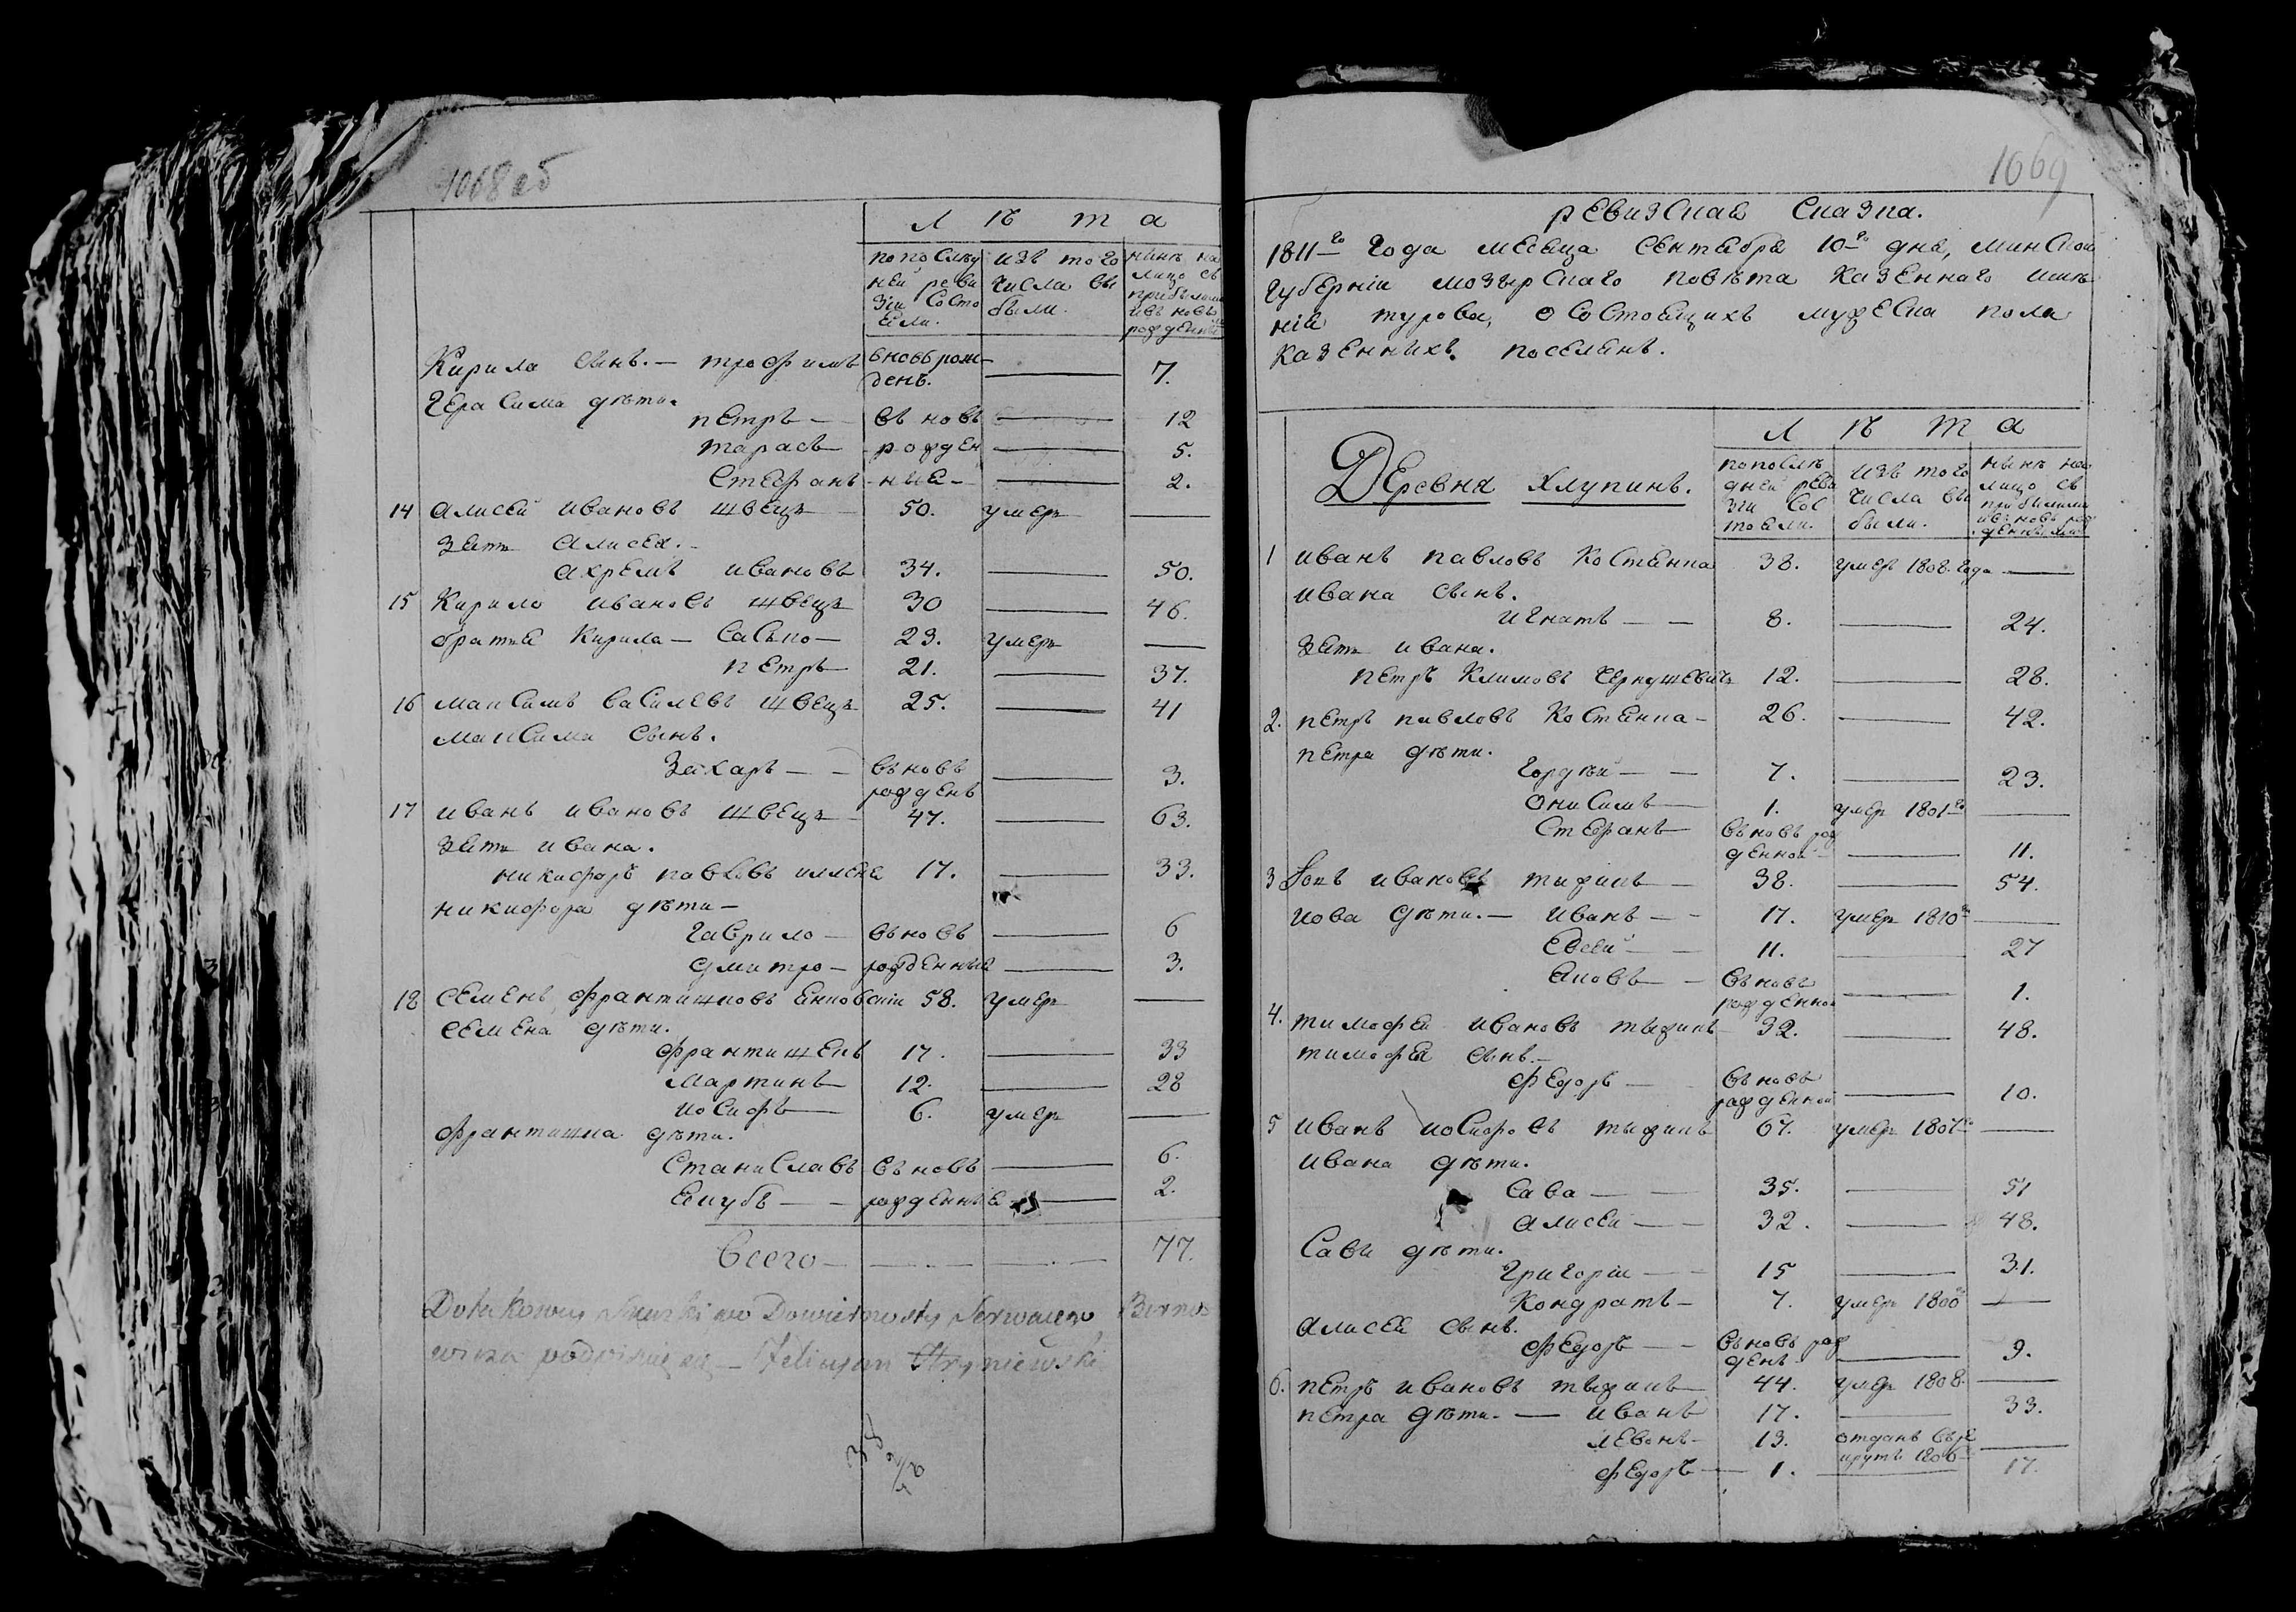 1068 об
Л ѣ т а
по послѣд изъ того нынѣ на
ней реви числа вы лицо съ
зіи состо были. прибылими
яли. и въ новь
рожденны
Кирила сынъ. — трофимъ вновь рож-
денъ. — 7.
Герасима дѣти.
петръ — въ новь — 12
тарасъ — рожден — 5.
Стефанъ — ные — — 2.
14 алисей ивановъ швецъ 50. умеръ —
зять алисея. —
ахремъ ивановъ 34. — 50.
15 Кирило ивановъ швецъ 30 — 46.
братья Кирила — 23. умеръ —
петръ 21. — 37.
16 максимъ василевъ швецъ 25. — 41
максима сынъ.
Захаръ — — въ новь
рожденъ — 3.
17 иванъ ивановъ швецъ 47. — 63.
зять ивана.
никифоръ павловъ 17. — 33.
никифора дѣти —
гаврило — въ новь — 6
дмитро — рожденные — 3.
18 семенъ франтишковъ 58. умеръ —
семена дѣти.
франтишекъ 17. — 33
мартинъ 12. — 28
иосифъ 6. умеръ —
франтишка дѣти.
Станиславъ въ новь — 6.
Якубъ — — рожденные — 2.
Всего — — — 77.
podpisuję się —
1069
ревизская сказка.
1811го года месяца сентября 10го дня, минской
губерніи мозырскаго повѣта казеннаго имѣ
нія турова, о состоящихъ мужеска пола
казенныхъ поселянъ.
Л ѣ т а
Деревня Хлупинъ.
по послѣ изъ того нынѣ на
дней реви числа вы лицо съ
зіи сос были. прибылими
тояли. и въ новь рож
денными
1 иванъ павловъ Костянка 38. умеръ 1808. года —
ивана сынъ.
игнатъ — — 8. — 24.
зять ивана.
петръ Климовъ Чернушевичъ 12. — 28.
2. петръ павловъ Костянка — 26. — 42.
петра дѣти.
гордѣй — — 7. — 23.
онисимъ — 1. умеръ 1801го —
Стефанъ въ новь рож
денной — 11.
3 иовъ ивановъ — 38. — 54.
иова дѣти. — иванъ — — 17. умеръ 1810го —
Евсей — 11. — 27
Яковъ — въ новь
рожденной — 1.
4. тимофей ивановъ 32. — 48.
тимофея сынъ. —
федоръ — въ новь
рожденной — 10.
5 иванъ иосифовъ 67. умеръ 1807го —
ивана дѣти.
Сава — — 35. — 51
алисей — — 32. — 48.
Савы дѣти.
Григорій — — 15 — 31.
Кондратъ — 7. умеръ 1800го —
алисея сынъ.
федоръ — — въ новь рож
денъ — 9.
6. петръ ивановъ 44. умеръ 1808. —
петра дѣти. — иванъ 17. — 33.
левонъ — 13. отданъ въ ре
крутъ 1806 —
федоръ — 1. — 17.